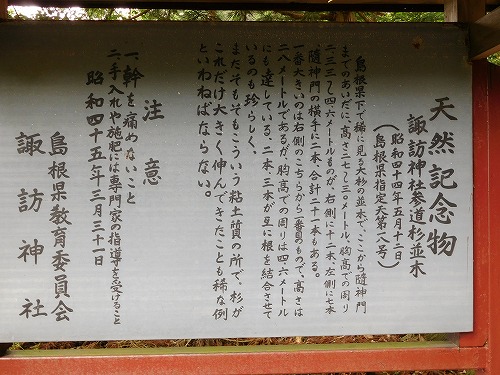 天然記念物
諏訪神社参道杉並木
(昭和四十四年五月二十三日
島根県指定天第八号)
島根県下で稀に見る大杉の並木で、ここから隨神門
までのあいだに、高さ二七〜三〇メートル、胸高での周り
二・三〜四・六メートルものが、右側に十二本、左側に七本
隨神門の横手に二本、合計二十一本もある。
一番大きいのは右側のこちらから一番目のもので、高さは
二八メートルであるが、胸高での周りは四・六メートル
にも達している。二本、三本が互に根を結合させて
いるのも珍らしく、
またそもそもこういう粘土質の所で、杉が
これだけ大きく伸んできたことも稀な例
といわねばならない。
注意
一、幹を痛めないこと
二、手入れや施肥には専門家の指導を受けること
昭和四十五年三月三十一日
島根県教育委員会
諏訪神社